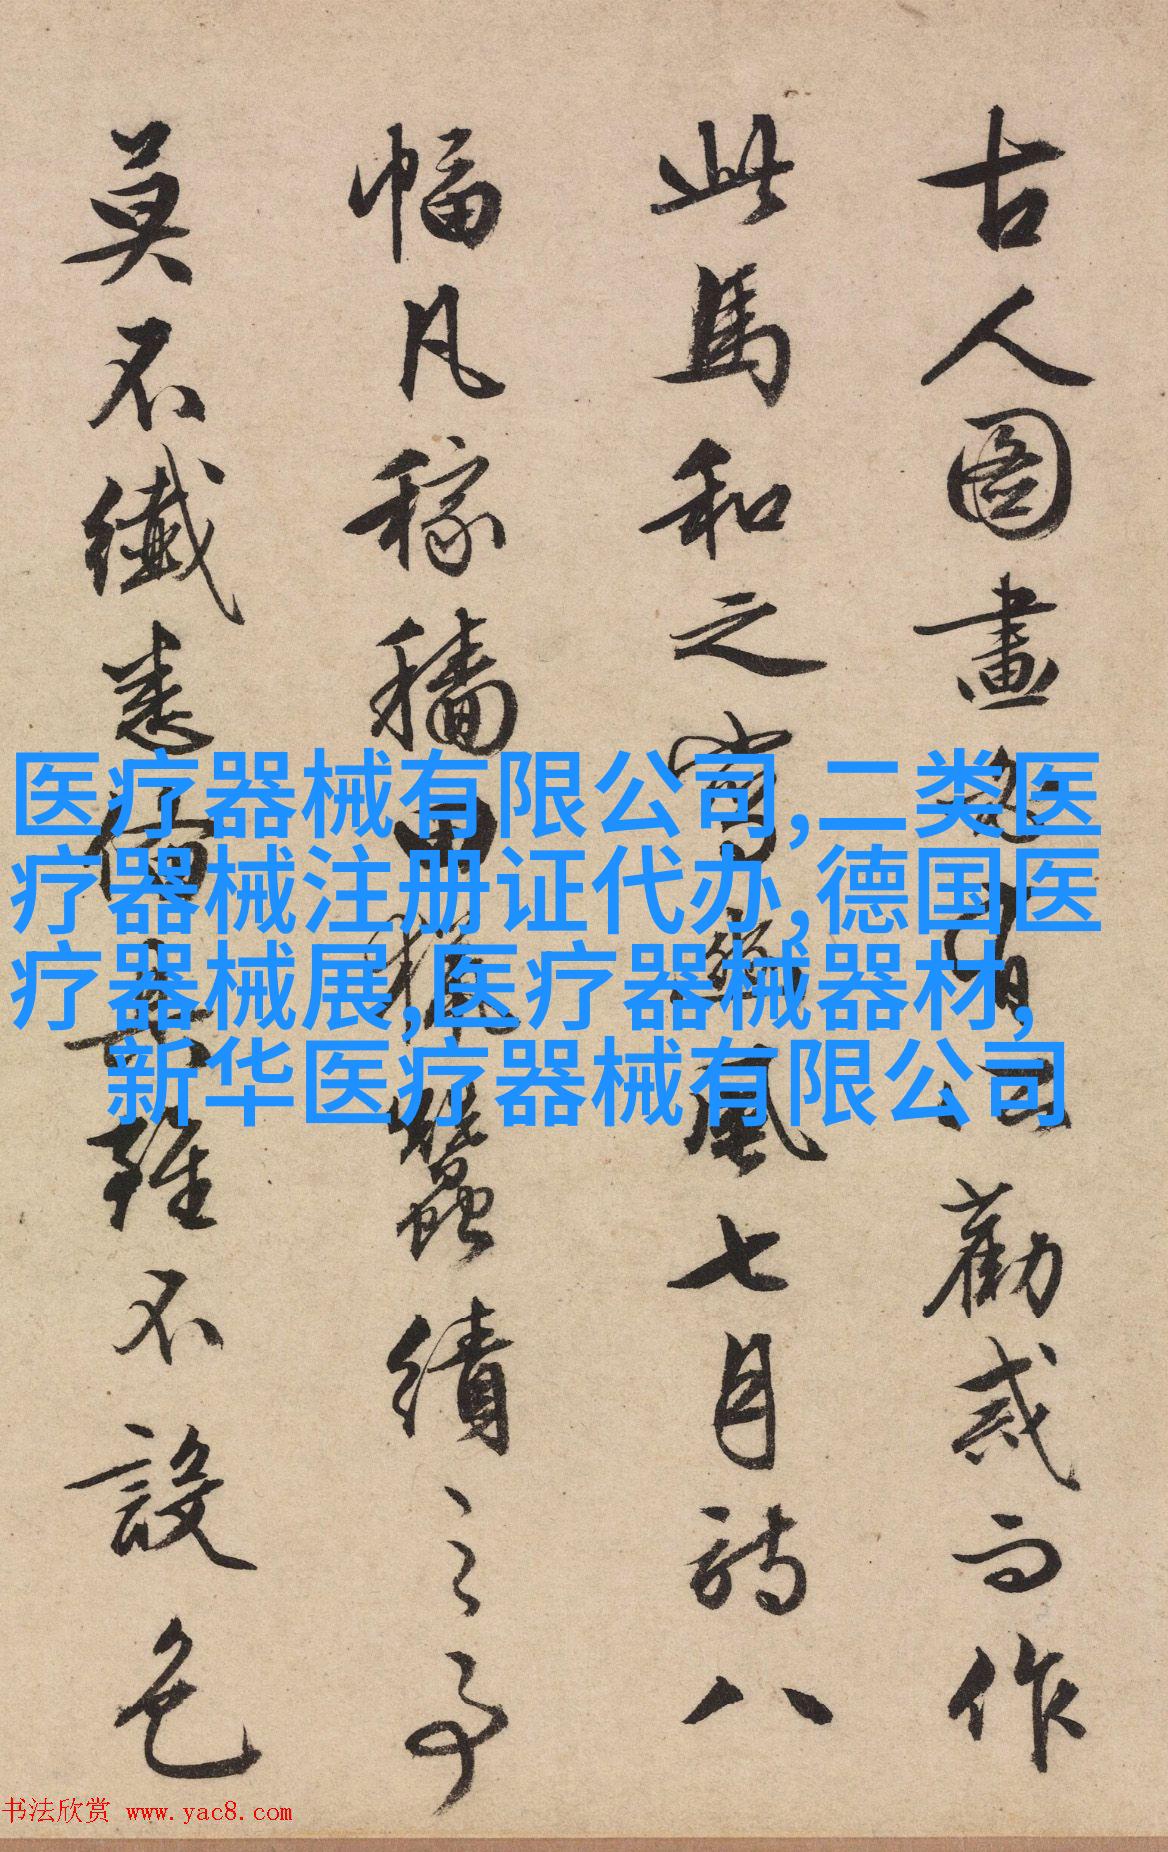 古人圖畫有勸戒而作
此馬和之寫豳風七月詩八
幅凡稼穡田獵蠶績之事
莫不纖悉備具雖不設色
医疗器械有限公司,二类医
疗器械注册证代办,德国医
疗器械展,医疗器械器材,
新华医疗器械有限公司
书法欣赏 www.yac8.com